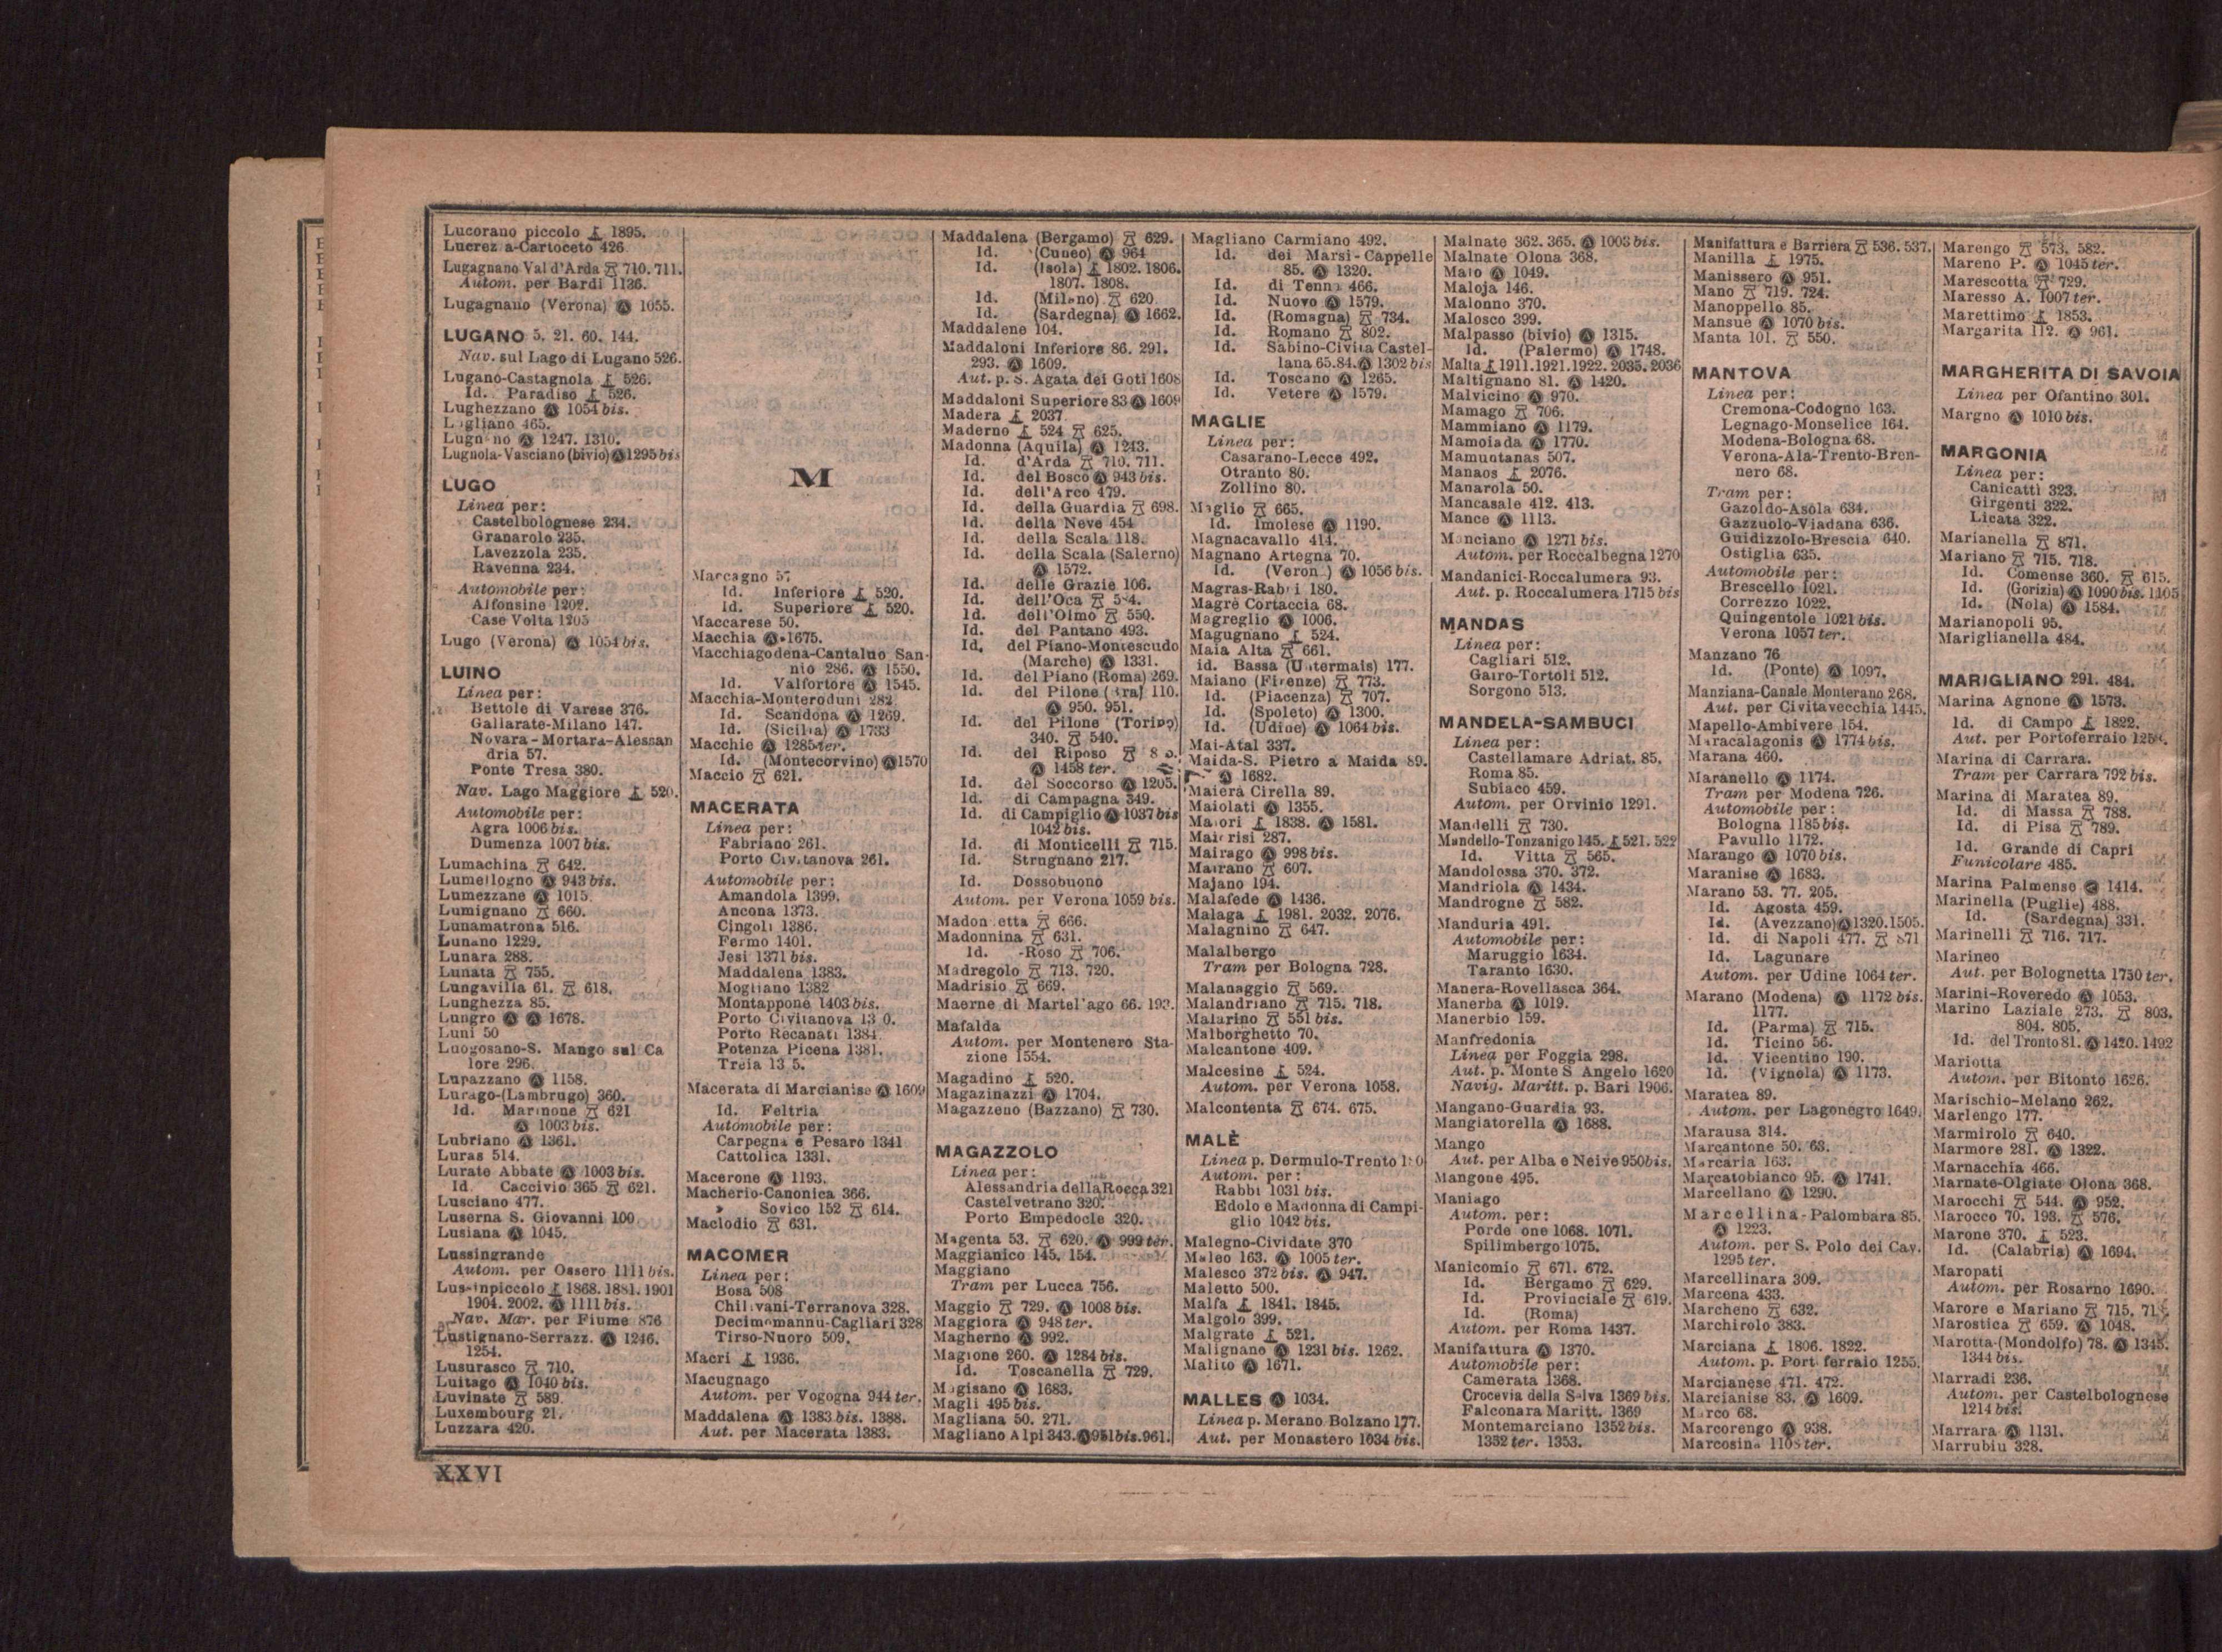 Lucorano piccolo 1895.
Lucrez a-Cartoceto 426
Lugagnano Val d'Arda 710. 711.
Autom. per Bardi 1136.
Lugagnano (Verona) Ⓐ 1055.
LUGANO 5. 21. 60. 144.
Nav. sul Lago di Lugano 526.
Lugano-Castagnola 526.
Id. Paradiso 526.
Lughezzano Ⓐ 1054 bis.
L gliano 465.
Lugn no Ⓐ 1247. 1310.
Lugnola-Vasciano (bivio) Ⓐ 1295 bis
LUGO
Linea per:
Castelbolognese 234.
Granarolo 235.
Lavezzola 235.
Ravenna 234.
Automobile per:
Alfonsine 1202.
Case Volta 1205
Lugo (Verona) Ⓐ 1054 bis.
LUINO
Linea per:
Bettole di Varese 376.
Gallarate-Milano 147.
Novara - Mortara-Alessan
dria 57.
Ponte Tresa 380.
Nav. Lago Maggiore 520.
Automobile per:
Agra 1006 bis.
Dumenza 1007 bis.
Lumachina 642.
Lumellogno Ⓐ 943 bis.
Lumezzane Ⓐ 1015.
Lumignano 660.
Lunamatrona 516.
Lunano 1229.
Lunara 288.
Lunata 755.
Lungavilla 61. 618.
Lunghezza 85.
Lungro Ⓐ Ⓐ 1678.
Luni 50
Luogosano-S. Mango sul Ca
lore 296.
Lupazzano Ⓐ 1158.
Lurago-(Lambrugo) 360.
Id. Marinone 621
Ⓐ 1003 bis.
Lubriano Ⓐ 1361.
Luras 514.
Lurate Abbate Ⓐ 1003 bis.
Id. Caccivio 365 621.
Lusciano 477.
Luserna S. Giovanni 100
Lusiana Ⓐ 1045.
Lussingrande
Autom. per Ossero 1111 bis.
Lussinpiccolo 1868. 1881. 1901
1904. 2002. Ⓐ 1111 bis.
Nav. Mar. per Fiume 876
Lustignano-Serrazz. Ⓐ 1246.
1254.
Lusurasco 710.
Luitago Ⓐ 1040 bis.
Luvinate 589.
Luxembourg 21.
Luzzara 420.
M
Maccagno 57
Id. Inferiore 520.
Id. Superiore 520.
Maccarese 50.
Macchia Ⓐ 1675.
Macchiagodena-Cantaluo San-
nio 286. Ⓐ 1550.
Id. Valfortore Ⓐ 1545.
Macchia-Monteroduni 282
Id. Scandona Ⓐ 1269.
Id. (Sicilia) Ⓐ 1733
Macchie Ⓐ 1285 ter.
Id. (Montecorvino) Ⓐ 1570
Maccio 621.
MACERATA
Linea per:
Fabriano 261.
Porto Civitanova 261.
Automobile per:
Amandola 1399.
Ancona 1373.
Cingoli 1386.
Fermo 1401.
Jesi 1371 bis.
Maddalena 1383.
Mogliano 1382
Montappone 1403 bis.
Porto Civitanova 13 0.
Porto Recanati 1384.
Potenza Picena 1381.
Treia 13 5.
Macerata di Marcianise Ⓐ 1609
Id. Feltria
Automobile per:
Carpegna e Pesaro 1341
Cattolica 1331.
Macerone Ⓐ 1193.
Macherio-Canonica 366.
» Sovico 152 614.
Maclodio 631.
MACOMER
Linea per:
Bosa 508
Chilivani-Terranova 328.
Decimomannu-Cagliari 328
Tirso-Nuoro 509.
Macri 1936.
Macugnago
Autom. per Vogogna 944 ter.
Maddalena Ⓐ 1383 bis. 1388.
Aut. per Macerata 1383.
Maddalena (Bergamo) 629.
Id. (Cuneo) Ⓐ 964
Id. (Isola) 1802. 1806.
1807. 1808.
Id. (Milano) 620
Id. (Sardegna) Ⓐ 1662.
Maddalene 104.
Maddaloni Inferiore 86. 291.
293. Ⓐ 1609.
Aut. p. S. Agata dei Goti 1608
Maddaloni Superiore 83 Ⓐ 1609
Madera 2037
Maderno 524 625.
Madonna (Aquila) Ⓐ 1243.
Id. d'Arda 710. 711.
Id. del Bosco Ⓐ 943 bis.
Id. dell'Arco 479.
Id. della Guardia 698.
Id. della Neve 454
Id. della Scala 118.
Id. della Scala (Salerno)
Ⓐ 1572.
Id. delle Grazie 106.
Id. dell'Oca 5 4.
Id. dell'Olmo 550.
Id. del Pantano 493.
Id. del Piano-Montescudo
(Marche) Ⓐ 1331.
Id. del Piano (Roma) 269.
Id. del Pilone (Bra) 110.
Ⓐ 950. 951.
Id. del Pilone (Torino)
340. 540.
Id. del Riposo 8 0.
Ⓐ 1458 ter.
Id. del Soccorso Ⓐ 1205.
Id. di Campagna 349.
Id. di Campiglio Ⓐ 1037 bis
1042 bis.
Id. di Monticelli 715.
Id. Strugnano 217.
Id. Dossobuono
Autom. per Verona 1059 bis.
Madon etta 666.
Madonnina 631.
Id. -Roso 706.
Madregolo 713. 720.
Madrisio 669.
Maerne di Martel'ago 66. 193.
Mafalda
Autom. per Montenero Sta-
zione 1554.
Magadino 520.
Magazinazzi Ⓐ 1704.
Magazzeno (Bazzano) 730.
MAGAZZOLO
Linea per:
Alessandria della Rocca 321
Castelvetrano 320.
Porto Empedocle 320.
Magenta 53. 620. Ⓐ 999 ter.
Maggianico 145. 154.
Maggiano
Tram per Lucca 756.
Maggio 729. Ⓐ 1008 bis.
Maggiora Ⓐ 948 ter.
Magherno Ⓐ 992.
Magione 260. Ⓐ 1284 bis.
Id. Toscanella 729.
Magisano Ⓐ 1683.
Magli 495 bis.
Magliana 50. 271.
Magliano Alpi 343. Ⓐ 951 bis. 961.
Magliano Carmiano 492.
Id. dei Marsi-Cappelle
85. Ⓐ 1320.
Id. di Tenna 466.
Id. Nuovo Ⓐ 1579.
Id. (Romagna) 734.
Id. Romano 802.
Id. Sabino-Civita Castel-
lana 65.84. Ⓐ 1302 bis
Id. Toscano Ⓐ 1265.
Id. Vetere Ⓐ 1579.
MAGLIE
Linea per:
Casarano-Lecce 492.
Otranto 80.
Zollino 80.
Maglio 665.
Id. Imolese Ⓐ 1190.
Magnacavallo 414.
Magnano Artegna 70.
Id. (Veron ) Ⓐ 1056 bis.
Magras-Rabbi 180.
Magrè Cortaccia 68.
Magreglio Ⓐ 1006.
Magugnano 524.
Maia Alta 661.
id. Bassa (Untermais) 177.
Maiano (Firenze) 773.
Id. (Piacenza) 707.
Id. (Spoleto) Ⓐ 1300.
Id. (Udine) Ⓐ 1064 bis.
Mai-Atal 337.
Maida-S. Pietro a Maida 89.
Ⓐ 1682.
Maierà Cirella 89.
Maiolati Ⓐ 1355.
Maiori 1838. Ⓐ 1581.
Mai risi 287.
Mairago Ⓐ 998 bis.
Mairano 607.
Majano 194.
Malafede Ⓐ 1436.
Malaga 1981. 2032. 2076.
Malagnino 647.
Malalbergo
Tram per Bologna 728.
Malanaggio 569.
Malandriano 715. 718.
Malarino 551 bis.
Malborghetto 70.
Malcantone 409.
Malcesine 524.
Autom. per Verona 1058.
Malcontenta 674. 675.
MALÈ
Linea p. Dermulo-Trento 1 0
Autom. per:
Rabbi 1031 bis.
Edolo e Madonna di Campi-
glio 1042 bis.
Malegno-Cividate 370
Maleo 163. Ⓐ 1005 ter.
Malesco 372 bis. Ⓐ 947.
Maletto 500.
Malfa 1841. 1845.
Malgolo 399.
Malgrate 521.
Malignano Ⓐ 1231 bis. 1262.
Malito Ⓐ 1671.
MALLES Ⓐ 1034.
Linea p. Merano Bolzano 177.
Aut. per Monastero 1034 bis.
Malnate 362. 365. Ⓐ 1003 bis.
Malnate Olona 368.
Malo Ⓐ 1049.
Maloja 146.
Malonno 370.
Malosco 399.
Malpasso (bivio) Ⓐ 1315.
Id. (Palermo) Ⓐ 1748.
Malta 1911.1921.1922. 2035. 2036
Maltignano 81. Ⓐ 1420.
Malvicino Ⓐ 970.
Mamago 706.
Mammiano Ⓐ 1179.
Mamoiada Ⓐ 1770.
Mamuntanas 507.
Manaos 2076.
Manarola 50.
Mancasale 412. 413.
Mance Ⓐ 1113.
Manciano Ⓐ 1271 bis.
Autom. per Roccalbegna 1270
Mandanici-Roccalumera 93.
Aut. p. Roccalumera 1715 bis
MANDAS
Linea per:
Cagliari 512.
Gairo-Tortoli 512.
Sorgono 513.
MANDELA-SAMBUCI
Linea per:
Castellamare Adriat. 85.
Roma 85.
Subiaco 459.
Autom. per Orvinio 1291.
Mandelli 730.
Mandello-Tonzanigo 145. 521. 522
Id. Vitta 565.
Mandolossa 370. 372.
Mandriola Ⓐ 1434.
Mandrogne 582.
Manduria 491.
Automobile per:
Maruggio 1634.
Taranto 1630.
Manera-Rovellasca 364.
Manerba Ⓐ 1019.
Manerbio 159.
Manfredonia
Linea per Foggia 298.
Aut. p. Monte S Angelo 1620
Navig. Maritt. p. Bari 1906.
Mangano-Guardia 93.
Mangiatorella Ⓐ 1688.
Mango
Aut. per Alba e Neive 950bis.
Mangone 495.
Maniago
Autom. per:
Porde one 1068. 1071.
Spilimbergo 1075.
Manicomio 671. 672.
Id. Bergamo 629.
Id. Provinciale 619.
Id. (Roma)
Autom. per Roma 1437.
Manifattura Ⓐ 1370.
Automobile per:
Camerata 1368.
Crocevia della Selva 1369 bis.
Falconara Maritt. 1369
Montemarciano 1352 bis.
1352 ter. 1353.
Manifattura e Barriera 536. 537.
Manilla 1975.
Manissero Ⓐ 951.
Mano 719. 724.
Manoppello 85.
Mansuè Ⓐ 1070 bis.
Manta 101. 550.
MANTOVA
Linea per:
Cremona-Codogno 163.
Legnago-Monselice 164.
Modena-Bologna 68.
Verona-Ala-Trento-Bren-
nero 68.
Tram per:
Gazoldo-Asola 634.
Gazzuolo-Viadana 636.
Guidizzolo-Brescia 640.
Ostiglia 635.
Automobile per:
Brescello 1021.
Correzzo 1022.
Quingentole 1021 bis.
Verona 1057 ter.
Manzano 76
Id. (Ponte) Ⓐ 1097.
Manziana-Canale Monterano 268.
Aut. per Civitavecchia 1445.
Mapello-Ambivere 154.
Maracalagonis Ⓐ 1774 bis.
Marana 460.
Maranello Ⓐ 1174.
Tram per Modena 726.
Automobile per:
Bologna 1185 bis.
Pavullo 1172.
Marango Ⓐ 1070 bis.
Maranise Ⓐ 1683.
Marano 53. 77. 205.
Id. Agosta 459.
Id. (Avezzano) Ⓐ 1320.1505.
Id. di Napoli 477. 871
Id. Lagunare
Autom. per Udine 1064 ter.
Marano (Modena) Ⓐ 1172 bis.
1177.
Id. (Parma) 715.
Id. Ticino 56.
Id. Vicentino 190.
Id. (Vignola) Ⓐ 1173.
Maratea 89.
Autom. per Lagonegro 1649.
Marausa 314.
Marcantone 50. 63.
Marcaria 163.
Marcatobianco 95. Ⓐ 1741.
Marcellano Ⓐ 1290.
Marcellina-Palombara 85.
Ⓐ 1223.
Autom. per S. Polo dei Cav.
1295 ter.
Marcellinara 309.
Marcena 433.
Marcheno 632.
Marchirolo 383.
Marciana 1806. 1822.
Autom. p. Port ferraio 1255.
Marcianese 471. 472.
Marcianise 83. Ⓐ 1609.
Marco 68.
Marcorengo Ⓐ 938.
Marcosina 1108 ter.
Marengo 573. 582.
Mareno P. Ⓐ 1045 ter.
Marescotta 729.
Maresso A. 1007 ter.
Marettimo 1853.
Margarita 112. Ⓐ 961.
MARGHERITA DI SAVOIA
Linea per Ofantino 301.
Margno Ⓐ 1010 bis.
MARGONIA
Linea per:
Canicatti 323.
Girgenti 322.
Licata 322.
Marianella 871.
Mariano 715. 718.
Id. Comense 360. 615.
Id. (Gorizia) Ⓐ 1090 bis. 1105
Id. (Nola) Ⓐ 1584.
Marianopoli 95.
Mariglianella 484.
MARIGLIANO 291. 484.
Marina Agnone Ⓐ 1573.
Id. di Campo 1822.
Aut. per Portoferraio 125 .
Marina di Carrara.
Tram per Carrara 792 bis.
Marina di Maratea 89.
Id. di Massa 788.
Id. di Pisa 789.
Id. Grande di Capri
Funicolare 485.
Marina Palmense 1414.
Marinella (Puglie) 488.
Id. (Sardegna) 331.
Marinelli 716. 717.
Marineo
Aut. per Bolognetta 1750 ter.
Marini-Roveredo Ⓐ 1053.
Marino Laziale 273. 803.
804. 805.
Id. del Tronto 81. Ⓐ 1420. 1492
Mariotta
Autom. per Bitonto 1626.
Marischio-Melano 262.
Marlengo 177.
Marmirolo 640.
Marmore 281. Ⓐ 1322.
Marnacchia 466.
Marnate-Olgiate Olona 368.
Marocchi 544. Ⓐ 952.
Marocco 70. 193. 576.
Marone 370. 523.
Id. (Calabria) Ⓐ 1694.
Maropati
Autom. per Rosarno 1690.
Marore e Mariano 715. 71 .
Marostica 659. Ⓐ 1048.
Marotta-(Mondolfo) 78. Ⓐ 1345.
1344 bis.
Marradi 236.
Autom. per Castelbolognese
1214 bis.
Marrara Ⓐ 1131.
Marrubiu 328.
XXVI